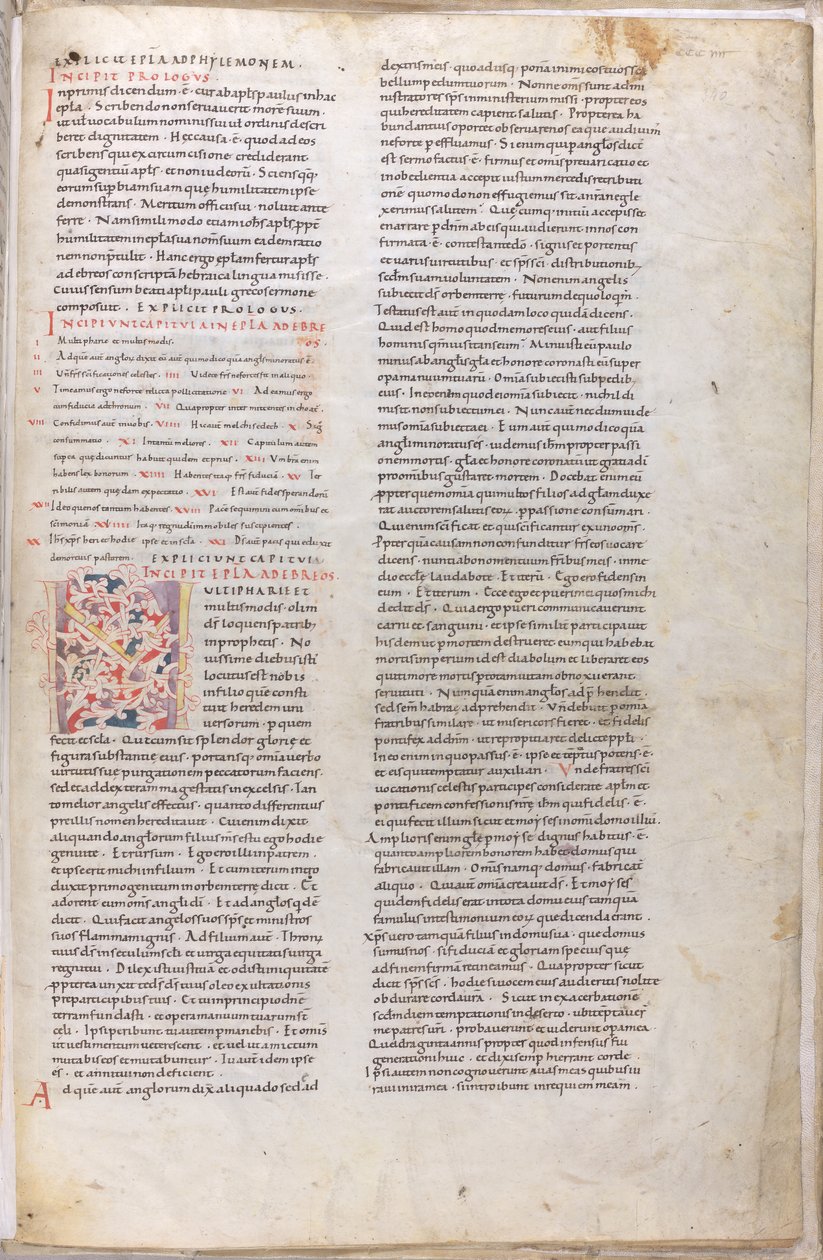 EXPLICIT EPL̄A AD PHYLEMONEM ·
INCIPIT PROLOGUS ·
Inprimis dicendum · ē · cur ab apl̄s paulus in hac
epl̄a · Scribendo non servaverit morē suum ·
ut ul̄ vocabulum nominis sui ul̄ ordinis descri
beret dignitatem · Hęc causa · ē · quod ad eos
scribens qui ex circumcisione crediderant
quasi gentiū apl̄s · et non iudeorū · Sciens qq̄
eorum superbiam suam quę humilitatem ipse
demonstrans · Meritum officii sui · noluit ante
ferre · Nam simili modo etiam ioh̄s apl̄s ꝓpt̄
humilitatem in epl̄a sua nom̄ suum eadem ratio
ne non p̄tulit · Hanc ergo epl̄am fertur apl̄s
ad ebreos conscriptā hebraica lingua misisse ·
Cuius sensum beati apl̄i pauli greco sermone
composuit · EXPLICIT PROLOGUS ·
INCIPIUNT CAPITULA IN EPL̄A AD EBRE
I Multipharie et multis modis · OS ·
II Ad quē aut̄ angl̄oꝝ dixit
III · IIII Videte fr̄s ne forte sit in aliquo ·
V Timeamus ergo ne forte relicta pollicitatione · VI Adeamus ergo
cum fiducia ad thronum · VII Quapropter inter mittentes inchoat̄ ·
VIII Confidimus aut̄ in vobis · VIIII Hic aut̄ melchisedech · X Si g̊
consummatio · XI In tantū melioris · XII Capitulum autem
sup ea quę dicuntur habuit quidem et prius · XIII Umbram enim
habens lex bonorum · XIIII Habentes itaq; fr̄s fiduciā · XV Ter
ribilis autem quędam expectatio · XVI Est aut̄ fides sperandorū
XVII Ideoque nos tantum habentes · XVIII Pacē sequimini cum omībus et
scīmoniā · XVIIII Itaq; regnū immobiles suscipientes ·
XX Ih̄s xp̄s heri et hodie ipse et in scl̄a · XXI Dś aut̄ pacis qui eduxit
de mortuis pastorem · EXPLICIUNT CAPITUL̄A
INCIPIT EPL̄A AD EBREOS ·
MULTIPHARIE ET
multis modis · olim
dś loquens patrib;
in prophetis · No
vissime diebus istis
locutus est nobis
in filio quē consti
tuit heredem uni
versorum · ꝑ quem
fecit et scl̄a · Qui cum sit splendor glorię et
figura substantię eius · portansq; omīa verbo
virtutis suę purgationem peccatorum faciens ·
sedet ad dexteram magestatis in excelsis · Tan
to melior angelis effectus · quanto differentius
pre illis nomen hereditavit · Cui enim dixit
aliquando angl̄orum filius m̄s es tu ego hodie
genui te · Et rursum · Ego ero illi in patrem ·
et ipse erit michi in filium · Et cum iterum intro
duxit primogenitum in orbem terrę dicit · Et
adorent eum om̄s angl̄i dī · Et ad angl̄os q̄dē
dicit · Qui facit angelos suos sp̄s et ministros
suos flammam ignis · Ad filium aut̄ · Thronꝰ
tuus dś in seculum scl̄i et virga equitatis virga
regni tui · Dilexisti iustitiā et odisti iniquitatē
ꝓpterea unxit te dś dś tuus oleo exultationis
pre participibus tuis · Et tu in principio dn̄e
terram fundasti · et opera manuum tuarum st̄
cęli · Ipsi peribunt tu autem ꝑmanebis · Et om̄s
ut vestimentum veterescent · et vel ut amictum
mutabis eos et mutabuntur · Tu aut̄ idem ipse
es · et anni tui non deficient ·
Ad quē aut̄ anglorum dix̄ aliquādo sede ad
dextris meis · quo adusq; ponā inimicos tuos sca
bellum pedum tuorum · Nonne om̄s sunt admi
nistratores sp̄s in ministerium missi · propter eos
qui hereditatem capient salutis · Propterea ha
bundantius oportet observare nos ea que audivim̄
ne forte ꝑeffluamus · Si enim qui ꝑ angl̄os dict̄
est sermo factus · ē · firmus et om̄is prevaricatio et
inobedientia accepit iustum mercedis retributi
onē · quomodo nos effugiemus si tantā negle
xerimus salutem · Quę cumq; initiū accepisset
enarrare ꝑ dn̄m ab eis qui audierunt in nos con
firmata · ē · contestante dō · signis et portentis
et variis virtutibus et sp̄s sc̄i · distributionib;
scdm̄ suam voluntatem · Non enim angelis
subiecit dś orbem terrę · futurum de quo loqim̄ ·
Testatus est aut̄ in quodam loco quidā dicens ·
Quid est homo quod memor es eius · aut filius
hominis qm̄ visitas eum · Minuisti eū paulo
minus ab angl̄is gl̄a et honore coronasti eū super
opa manuum tuarū · Omīa subiecisti sub pedib;
eius · In eo enim quod ei omīa subiecit · nichil di
misit non subiectum ei · Nunc aut̄ necdum vide
mus omīa subiecta ei · Eum aut̄ qui modico quā
angl̄i minoratus ē · videmus ih̄m propter passi
onem mortis · gl̄a et honore coronatū ut gratia dī
pro omībus gustaret mortem · Decebat enim eū
ꝓpter quem omīa qui multos filios ad gl̄am duxe
rat auctorem salutis eoꝝ · ꝑ passione consūmari ·
Qui enim sc̄ificat et qui sc̄ificantur ex uno om̄s ·
Ꝓpter quā causam non confunditur fr̄s eos vocare
dicens · nuntiabo nomen tuum fr̄ibus meis · in me
dio ecclę laudabo te · Et iterū · Ego ero fidens in
eum · Et iterum · Ecce ego et pueri mei quos michi
dedit dś · Quia ergo pueri communicaverunt
carni et sanguini · et ipse similit̄ participavit
hisdem ut ꝑ mortem destrueret eum qui habebat
mortis imperium id est diabolum et liberaret eos
qui timore mortis ꝑ totam vitam obnoxii erant
servituti · Nunquā enim angl̄os adp̄hendit ·
sed semen habrae adprehendit · Vn̄ debuit ꝑ omīa
fratribus similare · ut misericors fieret · et fidelis
pontifex ad dn̄m · ut repropitiaret delicta ppl̄i ·
In eo enim in quo passus · ē · ipse et teptatus potens · ē ·
et eis qui temptatur auxiliari · Vnde fratres sc̄i
vocationis celestis participes considerate apl̄m et
pontificem confessionis nr̄ę ih̄m qui fidelis · ē ·
ei qui fecit illum sicut et moyses in om̄i domo illiuꝰ ·
Amplioris enim gl̄ę p̄ moyse dignus habitus · ē ·
quanto ampliorem honorem habet domus qui
fabricavit illam · Om̄is namq; domus · fabricat̄
ab aliquo · Qui aut̄ omīa creavit dś · Et moyses
quidem fidelis erat in tota domu eius tamquā
famulus in testimonium eoꝝ que dicenda erant ·
Xp̄s vero tamquā filius in domu sua · que domus
sumus nos · si fiduciā et gloriam spei usquę
ad finem firmā retineamus · Quapropter sicut
dicit sp̄s sc̄s · hodie si vocem eius audieritis nolite
obdurare corda vr̄a · Sicut in exacerbationē
scdm̄ diem temptationis in deserto · ubi tēptaver̄
me patres vr̄i · probaverunt et viderunt opa mea
Quadraginta annis propter quod infensus fui
generationi huic · et dixi semꝑ hi errant corde
Ipsi autem non cognoverunt vias meas quibus iu
ravi in ira mea · si introibunt in requiem meam ·